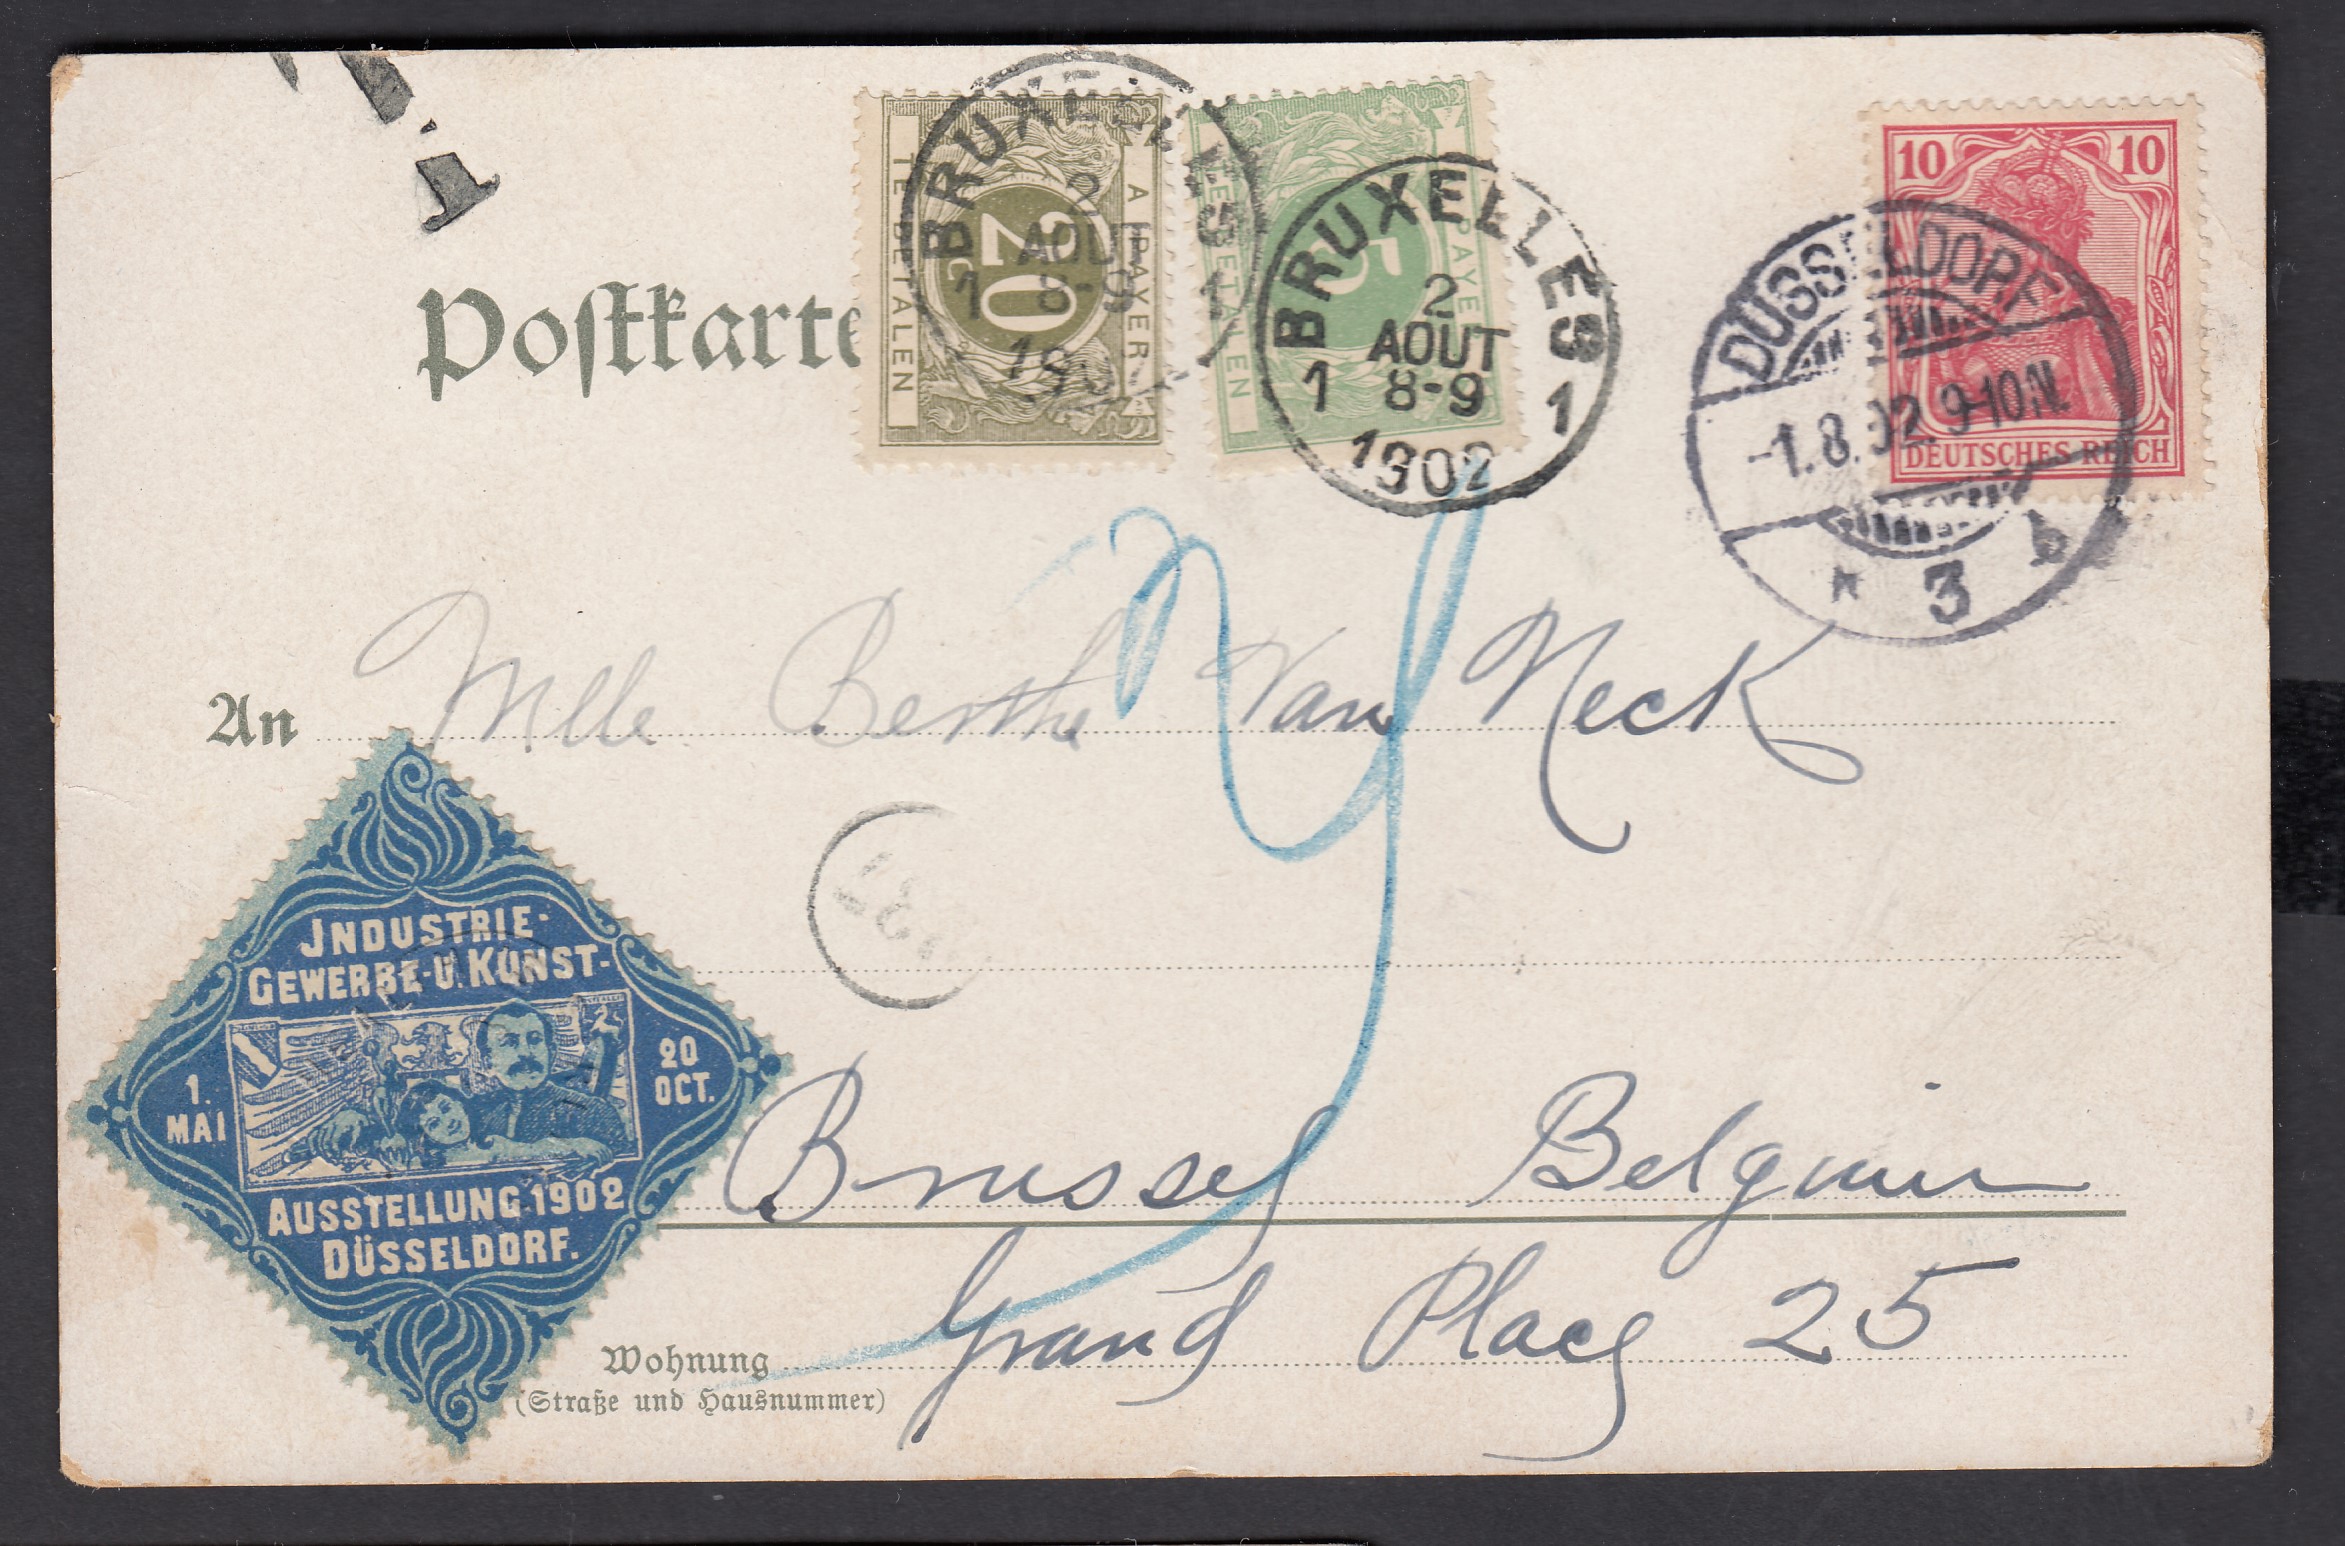 T
Postkarte
A PAYER
20
C
TE BETALEN
A PAYER
5
TE BETALEN
BRUXELLES
2
AOUT
1 8-9 1
1902
BRUXELLES
2
AOUT
1 8-9 1
1902
10 10
DEUTSCHES REICH
DÜSSELDORF
-1.8.02.9-10N.
* 3 b
An Mlle Berthe Van Neck
JNDUSTRIE-
GEWERBE-U.KUNST-
1.
MAI
20
OCT.
AUSSTELLUNG 1902
DÜSSELDORF.
Brussel Belgium
Wohnung Grand Place 25
(Straße und Hausnummer)